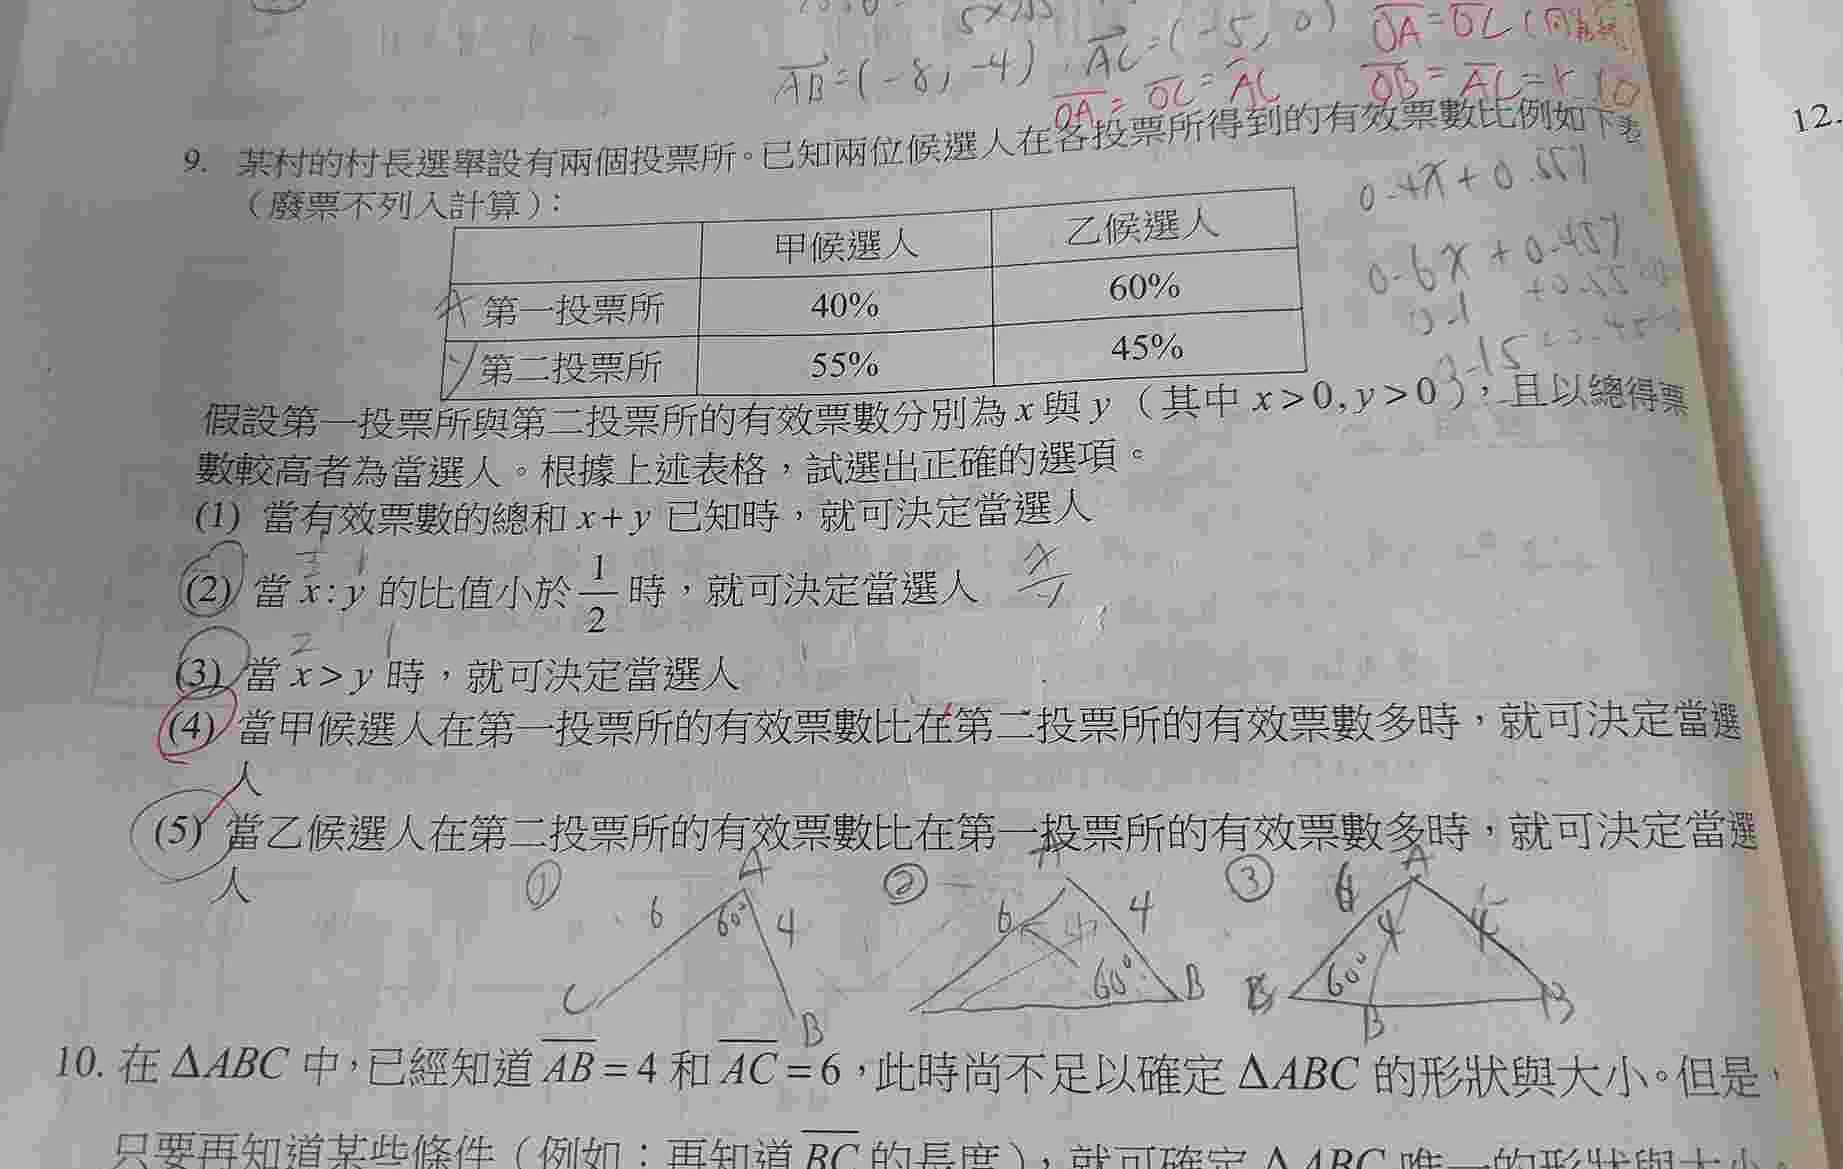 5×
AB=(-8,-4), AC=(-5, 0)
OA=OC=AC
OA=OC(
OB=AC=r
12.
9. 某村的村長選舉設有兩個投票所。已知兩位候選人在各投票所得到的有效票數比例如下表
（廢票不列入計算）：
甲候選人 乙候選人
x 第一投票所 40% 60%
y 第二投票所 55% 45%
0.4x+0.55y
0.6x+0.45y
假設第一投票所與第二投票所的有效票數分別為 x 與 y （其中 x>0, y>0），且以總得票
數較高者為當選人。根據上述表格，試選出正確的選項。
(1) 當有效票數的總和 x+y 已知時，就可決定當選人
(2) 當 x:y 的比值小於 1/2 時，就可決定當選人
x/y
2 1
(3) 當 x>y 時，就可決定當選人
(4) 當甲候選人在第一投票所的有效票數比在第二投票所的有效票數多時，就可決定當選
人
(5) 當乙候選人在第二投票所的有效票數比在第一投票所的有效票數多時，就可決定當選
人
① A 6 60° 4 C B
② A 6 4 60° B
③ A 4 60° B B
10. 在 ΔABC 中，已經知道 AB=4 和 AC=6，此時尚不足以確定 ΔABC 的形狀與大小。但是，
只要再知道某些條件（例如：再知道 BC 的長度），就可確定 ΔABC 唯一的形狀與大小。